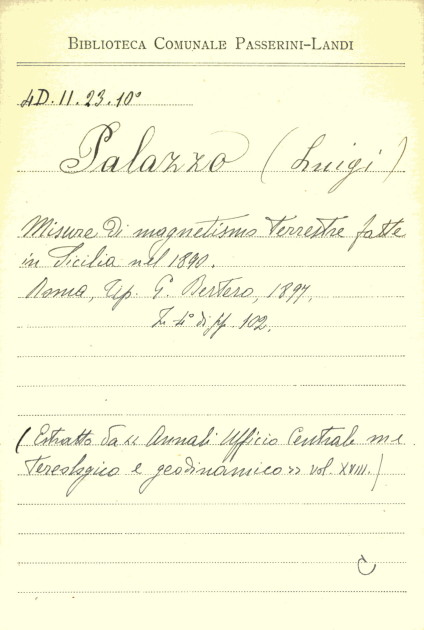 BIBLIOTECA COMUNALE PASSERINI-LANDI
4D.II.23.10°
Palazzo (Luigi)
Misure di magnetismo terrestre fatte
in Sicilia nel 1890.
Roma, tip. G. Bertero, 1897,
in 4° di pp. 102.
(Estratto da << Annali Ufficio Centrale me
tereologico e geodinamico >> vol. XVIII.)
C